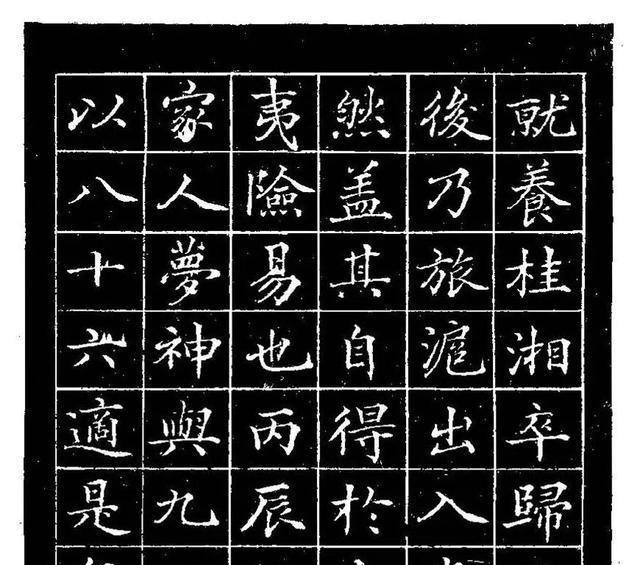 就養桂湘卒歸
後乃旅滬出入
然盖其自得於
夷險易也丙辰
家人夢神與九
以八十六適是